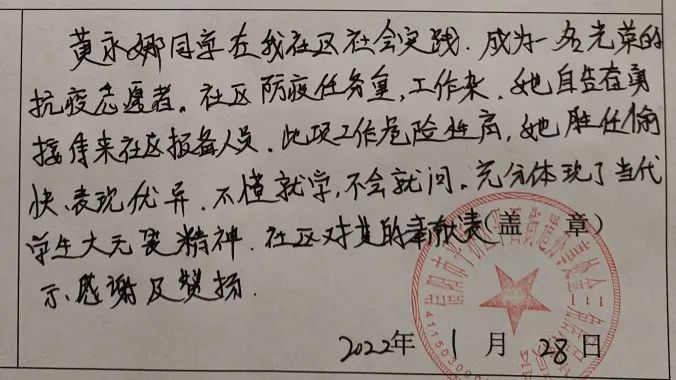 黄永娜同学在我社区社会实践.成为一名光荣的
抗疫志愿者。社区防疫任务重,工作杂.她自告奋勇
接待来社区报备人员.此项工作危险性高,她胜任愉
快、表现优异.不懂就学,不会就问。充分体现了当代
学生大无畏精神.社区对其的奉献表(盖 章)
示感谢及赞扬.
2022年 1 月 28日
信阳市平桥区
4115030